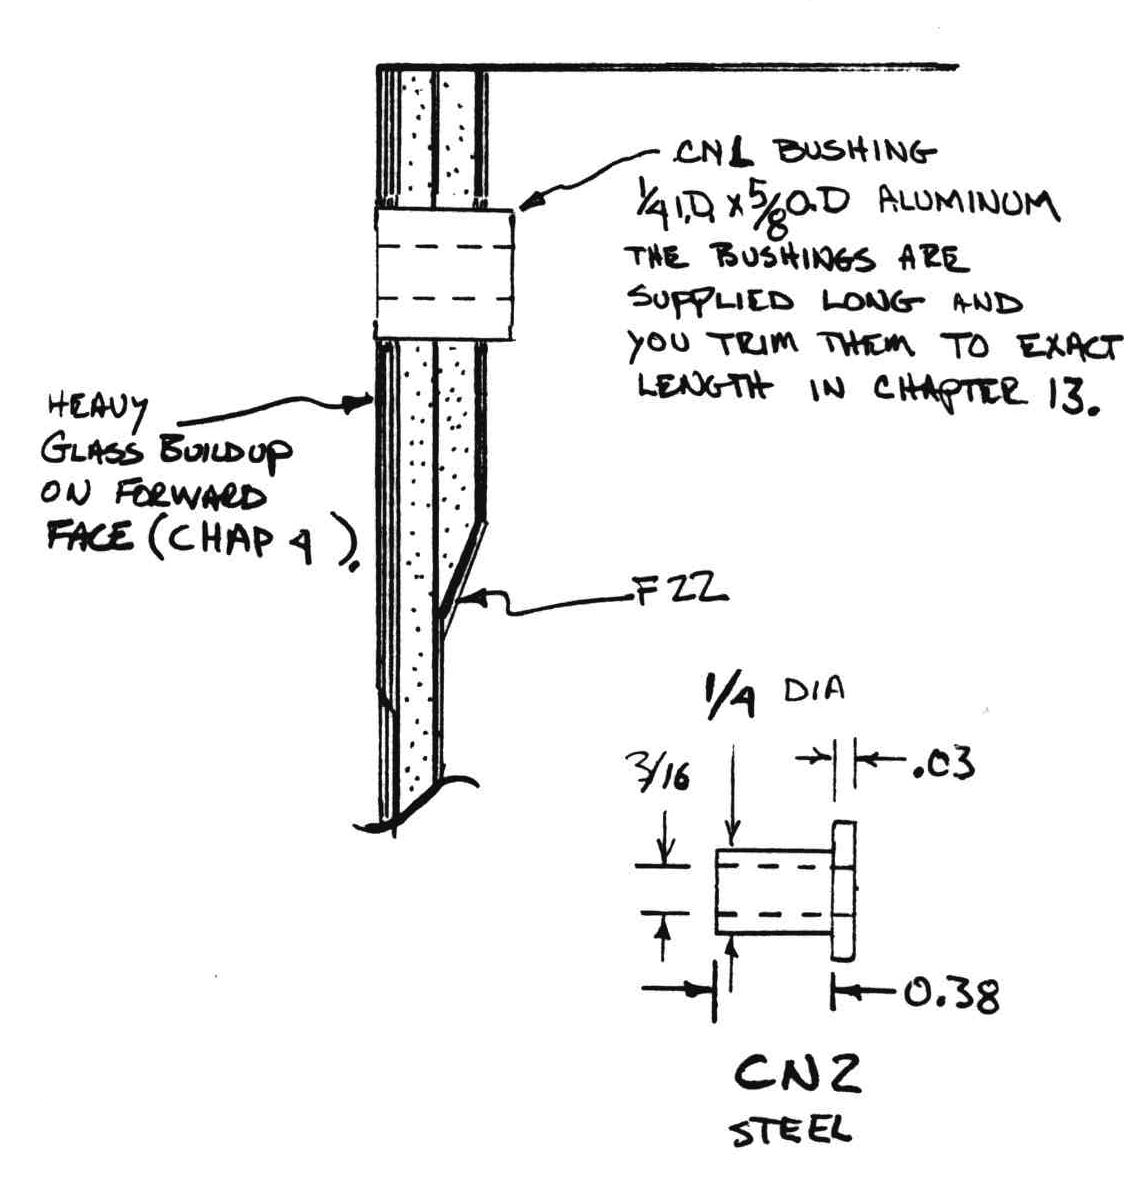 CN1 BUSHING
1/4 I.D. x 5/8 O.D ALUMINUM
THE BUSHINGS ARE
SUPPLIED LONG AND
YOU TRIM THEM TO EXACT
LENGTH IN CHAPTER 13.
HEAVY
GLASS BUILDUP
ON FORWARD
FACE (CHAP 4).
F22
1/4 DIA
3/16
.03
0.38
CN2
STEEL